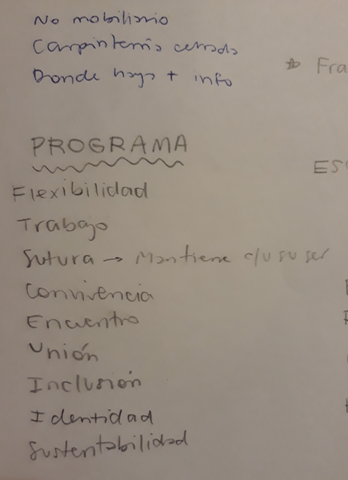 No mobiliario
Carpintería cerrada
Donde haya + info
* Fra
PROGRAMA
ES
Flexibilidad
Trabajo
Sutura → Mantiene c/u su ser
Convivencia
Encuentro
Unión
Inclusión
Identidad
Sustentabilidad